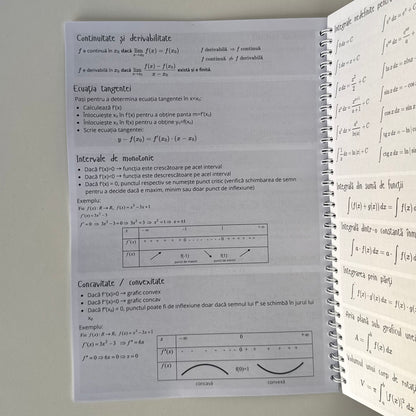 Continuitate și derivabilitate
f e continuă în x₀ dacă lim x→x₀ f(x) = f(x₀)
f derivabilă ⇒ f continuă
f continuă ⇏ f derivabilă
f e derivabilă în x₀ dacă lim x→x₀ (f(x) − f(x₀))/(x − x₀) există și e finită.
Ecuația tangentei
Pași pentru a determina ecuația tangentei în x=x₀:
• Calculează f'(x)
• Înlocuiește x₀ în f'(x) pentru a obține panta m=f'(x₀)
• Înlocuiește x₀ în f(x) pentru a obține y₀=f(x₀)
• Scrie ecuația tangentei:
y − f(x₀) = f'(x₀) · (x − x₀)
Intervale de monotonie
• Dacă f'(x)>0 → funcția este crescătoare pe acel interval
• Dacă f'(x)<0 → funcția este descrescătoare pe acel interval
• Dacă f'(x) = 0, punctul respectiv se numește punct critic (verifică schimbarea de semn
pentru a decide dacă e maxim, minim sau doar punct de inflexiune)
Exemplu:
Fie f(x): R→R, f(x)=x³−3x+1
f'(x)=3x²−3
f' = 0 ⇒ 3x²−3=0 ⇒ 3x²=3 ⇒ x²=1 ⇒ x=±1
x −∞ -1 1 +∞
f'(x) + + + + 0 - - - - 0 + + + +
f(x) f(-1) f(1)
punct de maxim punct de minim
Concavitate / convexitate
• Dacă f"(x)>0 → grafic convex
• Dacă f"(x)<0 → grafic concav
• Dacă f"(x₀) = 0, punctul poate fi de inflexiune doar dacă semnul lui f" se schimbă în jurul lui
x₀
Exemplu:
Fie f(x): R→R, f(x)=x³−3x+1
f'(x) = 3x² − 3 ⇒ f" = 6x
f" = 0 ⇒ 6x = 0 ⇒ x = 0
x −∞ 0 +∞
f"(x) - - - - 0 + + + +
f(x) f(0)=1
concavă convexă
Integrale nedefinite
∫ dx = x + C
+ C
∫ 1/x dx = ln|x| + C
∫ eˣ dx = eˣ +
∫ aˣ dx =
∫ sin x dx = −
∫ cos x dx =
∫ tg x dx = −
∫ ctg x dx = ln
Integrală din sumă de funcții
∫ [f(x) + g(x)] dx = ∫
Integrală dintr-o constantă înmul
∫ a · f(x) dx = a · ∫ f
Integrarea prin părți
∫ f(x) · g'(x) dx = f(x) · g
Aria plană sub graficul unei
A = ∫ₐᵇ f(x)
Volumul unui corp de rotaț
V = π ∫ₐᵇ [f(x)]² dx